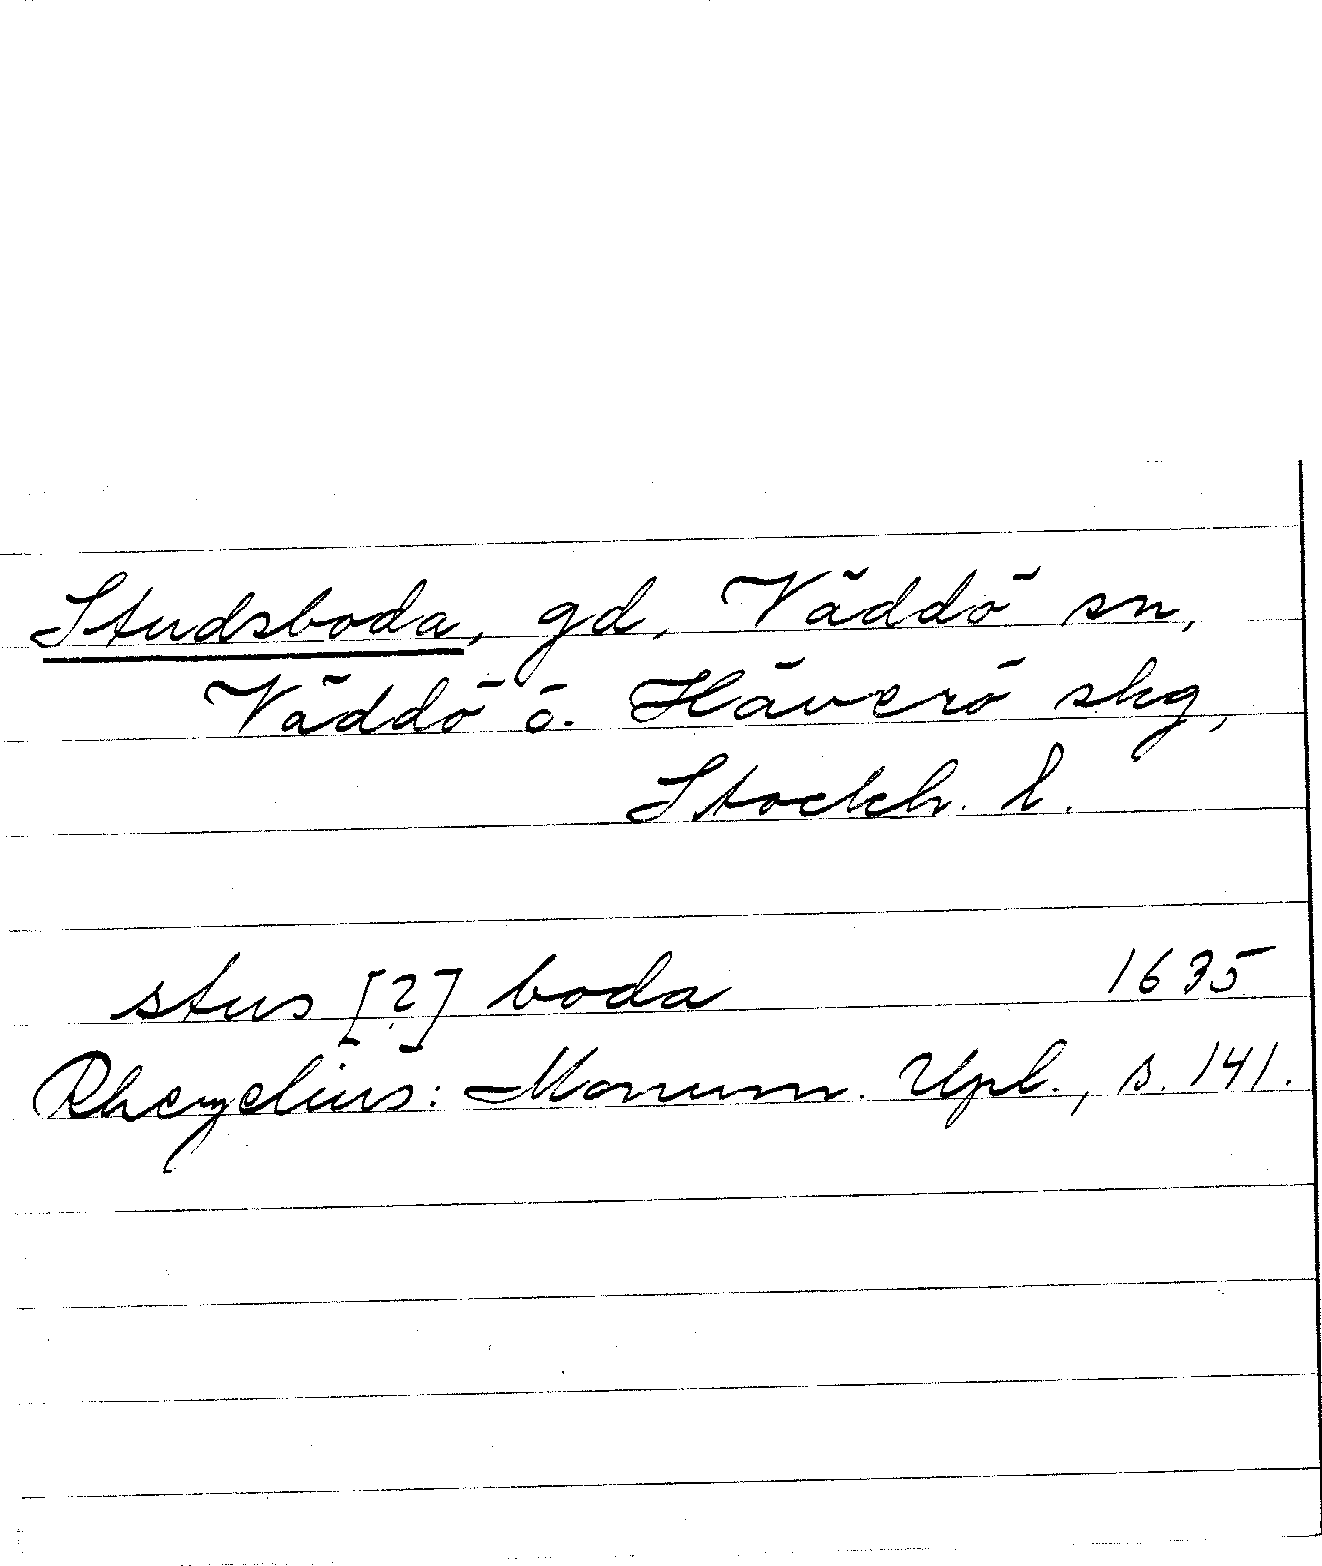 Studsboda, gd, Väddö sn,
Väddö o. Häverö skg,
Stockh. l.
stus [?] boda 1635
Rhezelius: Monum. Upl., s. 141.